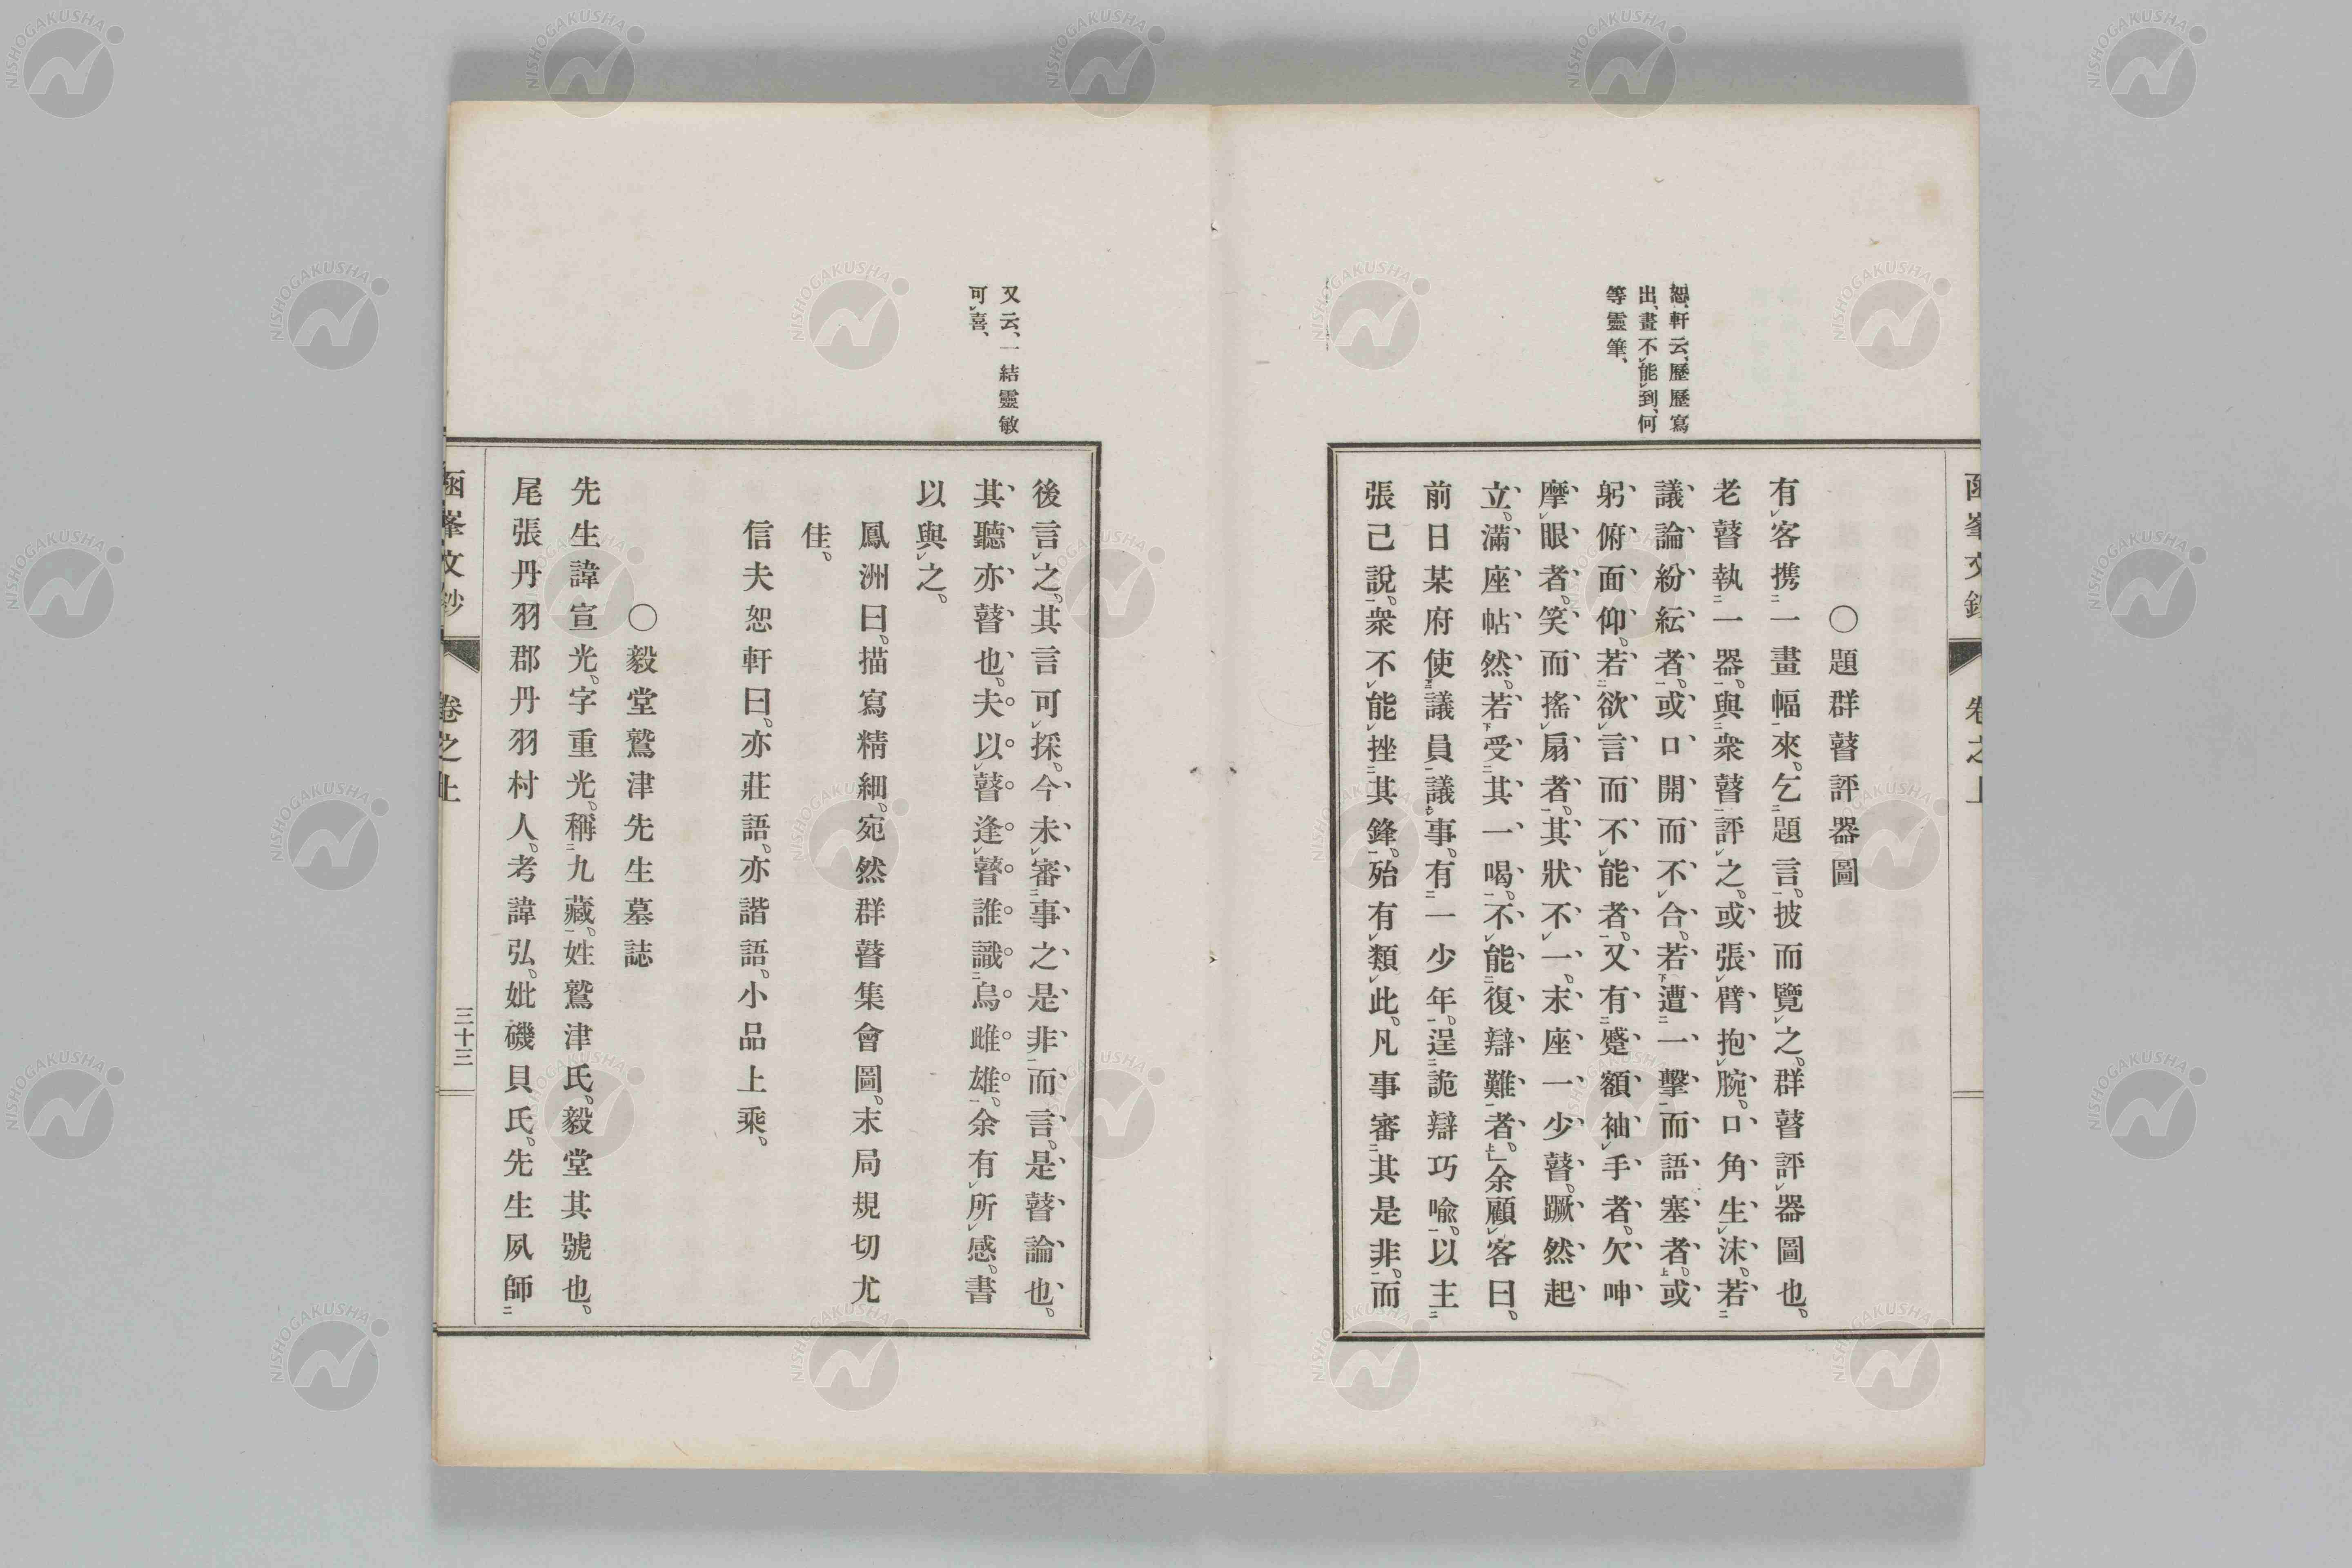 恕軒云、歷歷寫
出、畫不能到、何
等靈筆、
○題群瞽評器圖
有客携一畫幅來。乞題言。披而覽之。群瞽評器圖也。
老瞽執一器。與衆瞽評之。或張臂抱腕。口角生沫。若
議論紛紜者。或口開而不合。若遭一擊而語塞者。或
躬俯面仰。若欲言而不能者。又有蹙額袖手者。欠呻
摩眼者。笑而搖扇者。其狀不一。末座一少瞽。蹶然起
立。滿座帖然。若受其一喝。不能復辯難者。」余顧客曰。
前日某府使議員議事。有一少年。逞詭辯巧喩。以主
張己說。衆不能挫其鋒。殆有類此。凡事審其是非。而
函峯文鈔 卷之上
又云、一結靈敏
可喜、
後言之。其言可採。今未審事之是非而言。是瞽論也。
其聽亦瞽也。夫以瞽逢瞽誰識烏雌雄。余有所感。書
以與之。
鳳洲曰。描寫精細。宛然群瞽集會圖。末局規切尤
佳。
信夫恕軒曰。亦莊語。亦諧語。小品上乘。
○毅堂鷲津先生墓誌
先生諱宣光。字重光。稱九藏。姓鷲津氏。毅堂其號也。
尾張丹羽郡丹羽村人。考諱弘。妣磯貝氏。先生夙師
函峯文鈔 卷之上 三十三
NISHOGAKUSHA